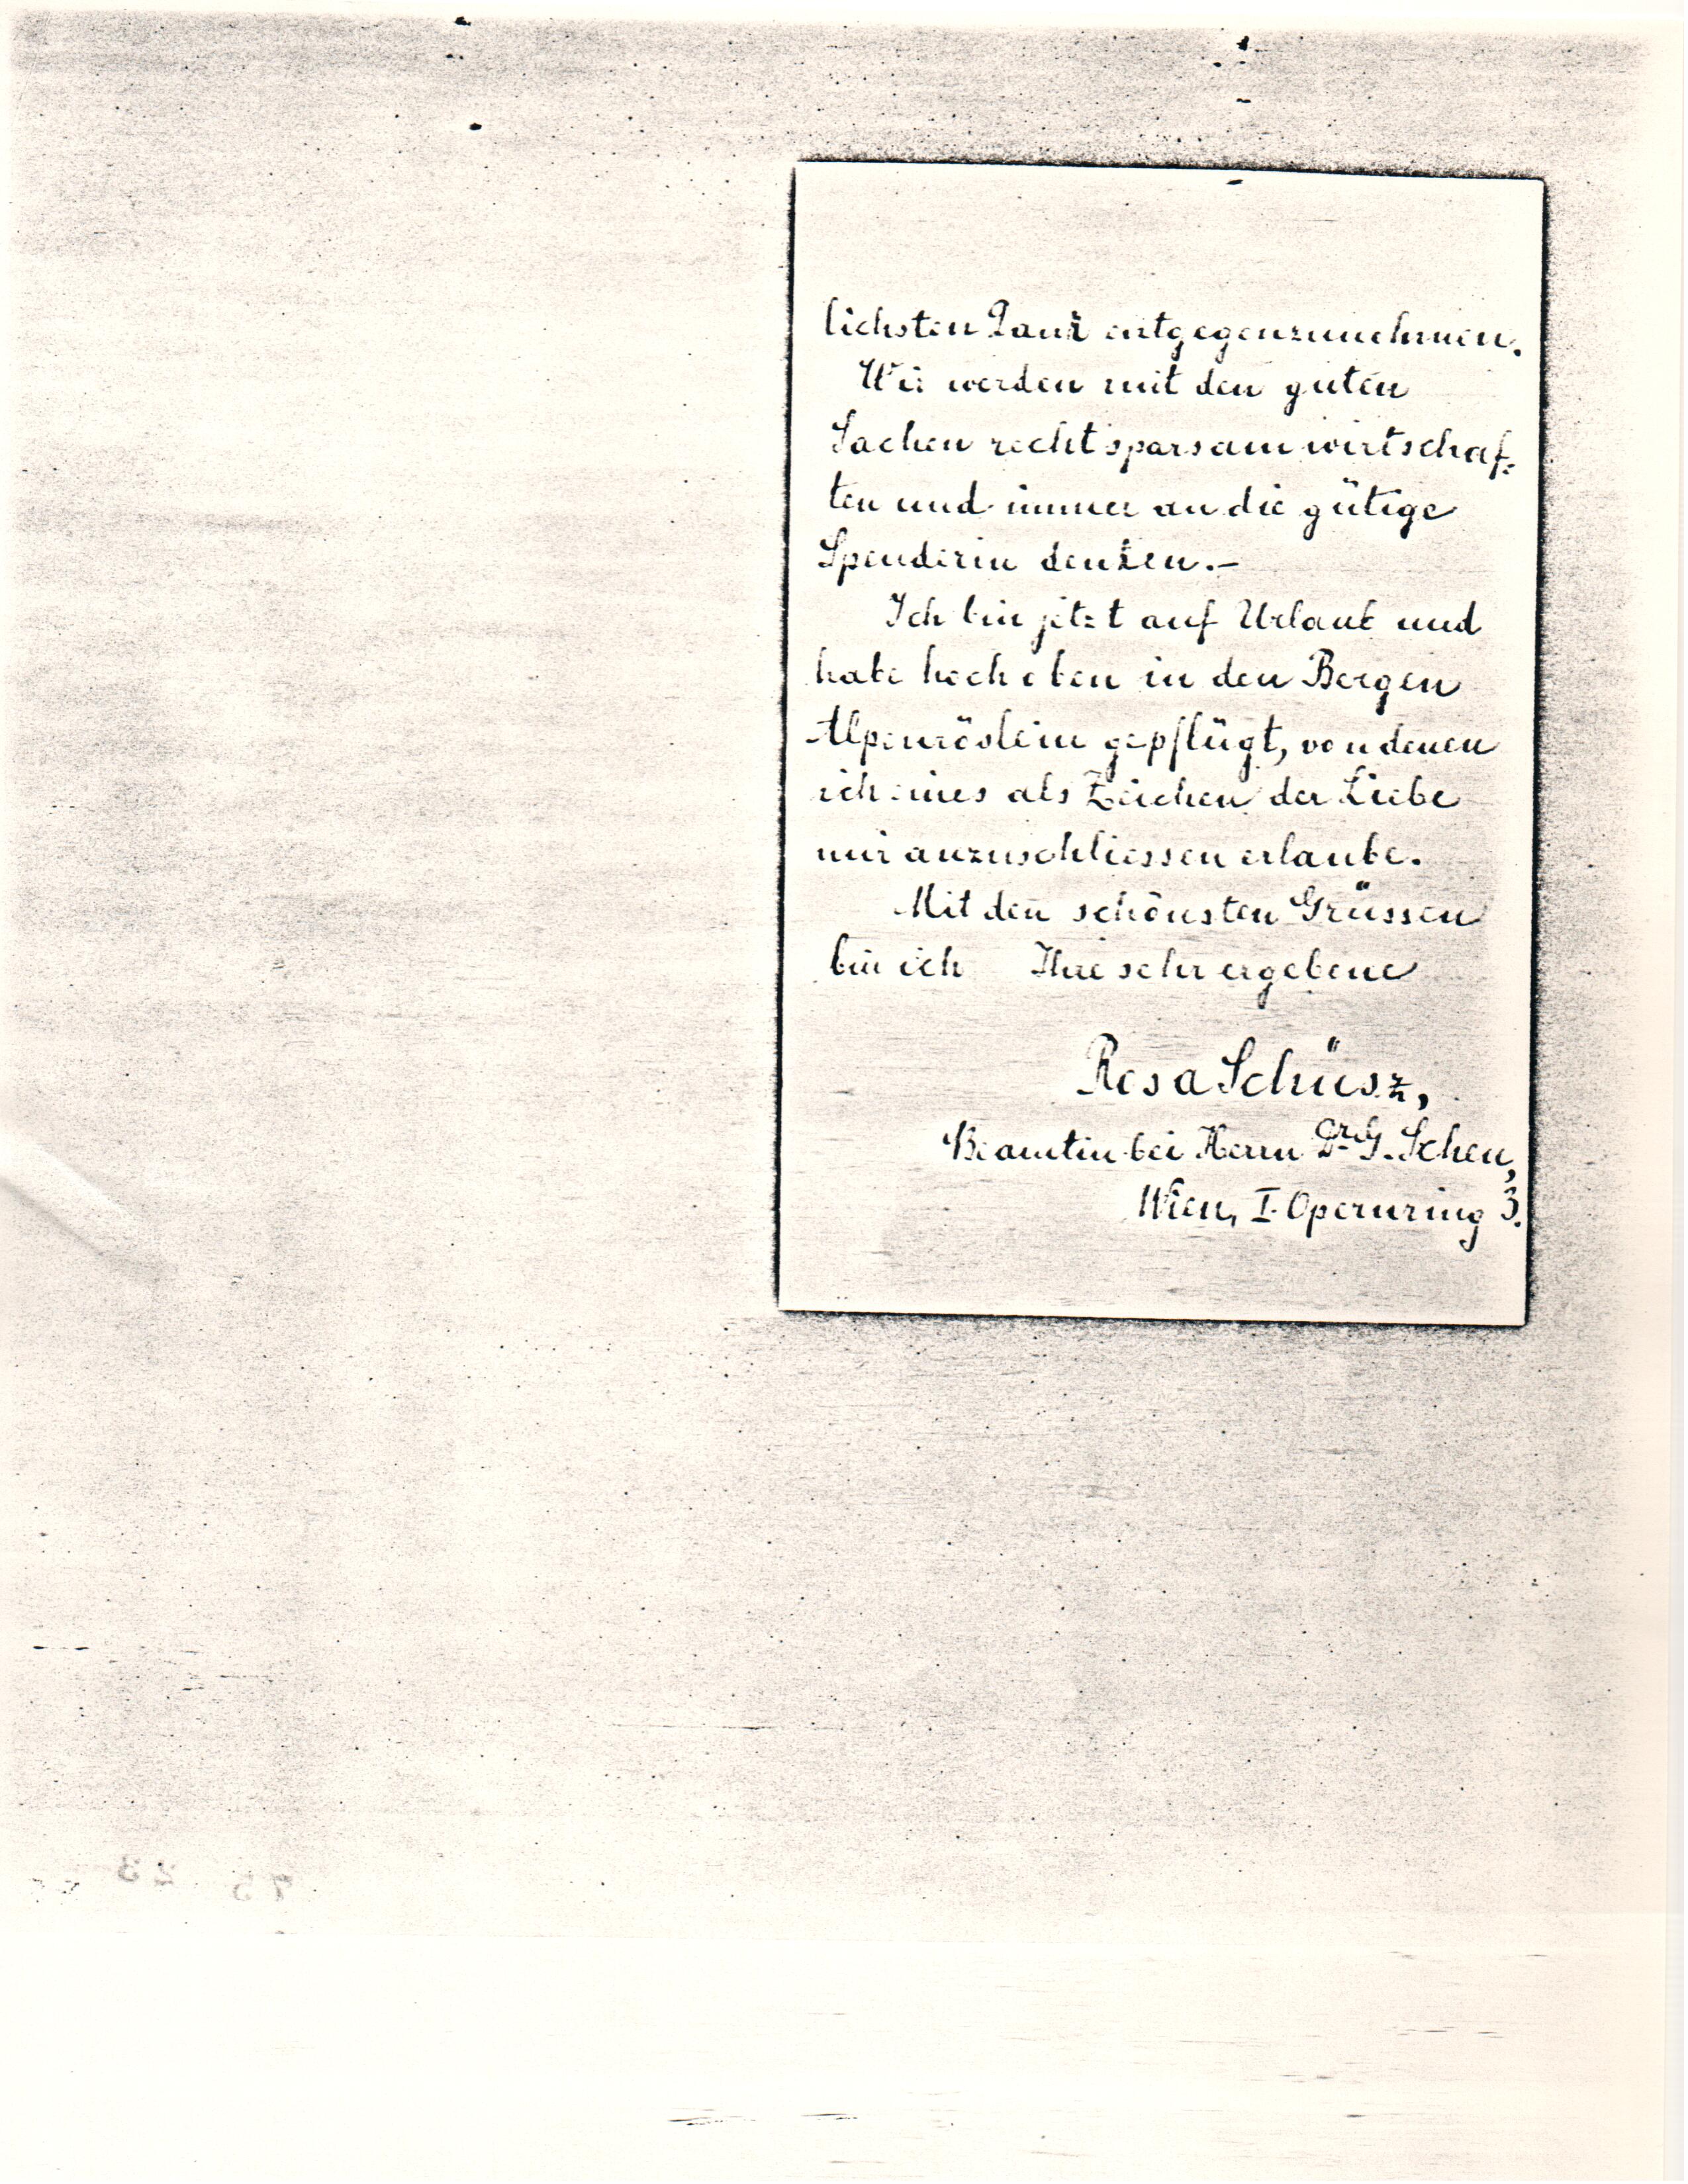 lichsten Dank entgegenzunehmen.
Wir werden mit den guten
Sachen recht sparsam wirtschaf-
ten und immer an die gütige
Spenderin denken.–
Ich bin jetzt auf Urlaub und
habe hoch oben in den Bergen
Alpenröslein gepflügt, von denen
ich eines als Zeichen der Liebe
mir anzuschliessen erlaube.
Mit den schönsten Grüssen
bin ich Ihre sehr ergebene
Rosa Schüsz,
Beamtin bei Herrn Dr. G. Scheu,
Wien, I. Opernring 3.